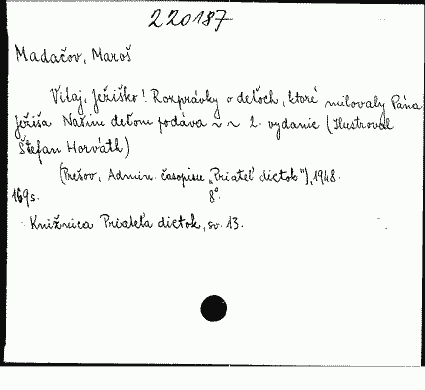 220187
Madačov, Maroš
Vitaj, Ježiško! Rozprávky o deťoch, ktoré milovaly Pána
Ježiša Našim deťom podáva ~ ~ 2. vydanie (Ilustroval
Štefan Horváth)
(Prešov, Admin. časopisu „Priateľ dietok"), 1948.
169 s. 8°.
Knižnica Priateľa dietok, sv. 13.